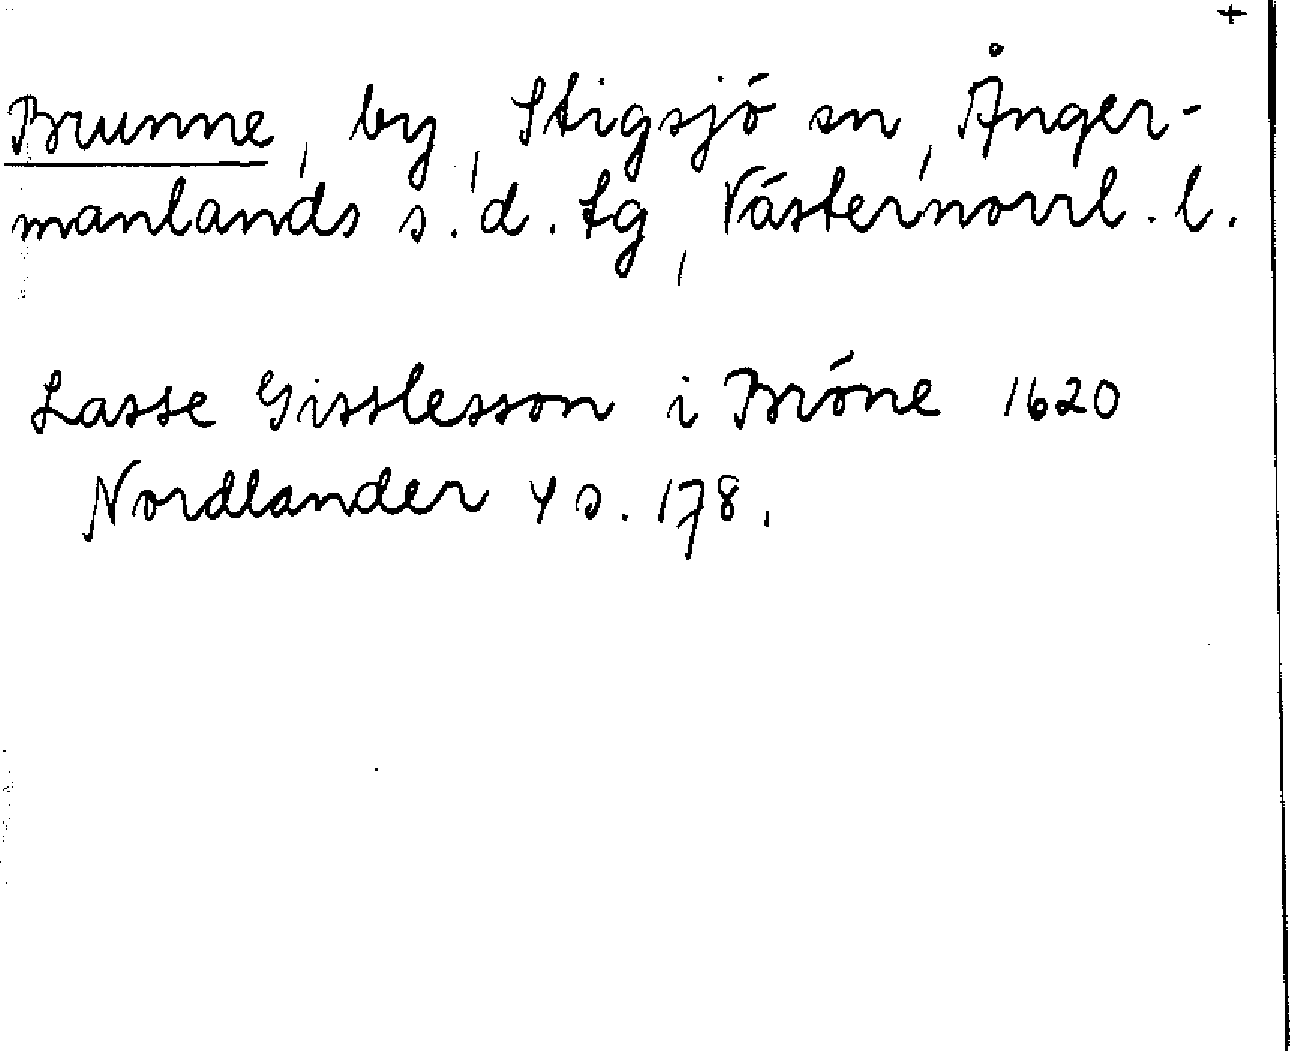 +
Brunne, by, Stigsjö sn, Ånger-
manlands s. d. tg, Västernorrl. l.
Lasse Gisslesson i Bröne 1620
Nordlander 4 s. 178.